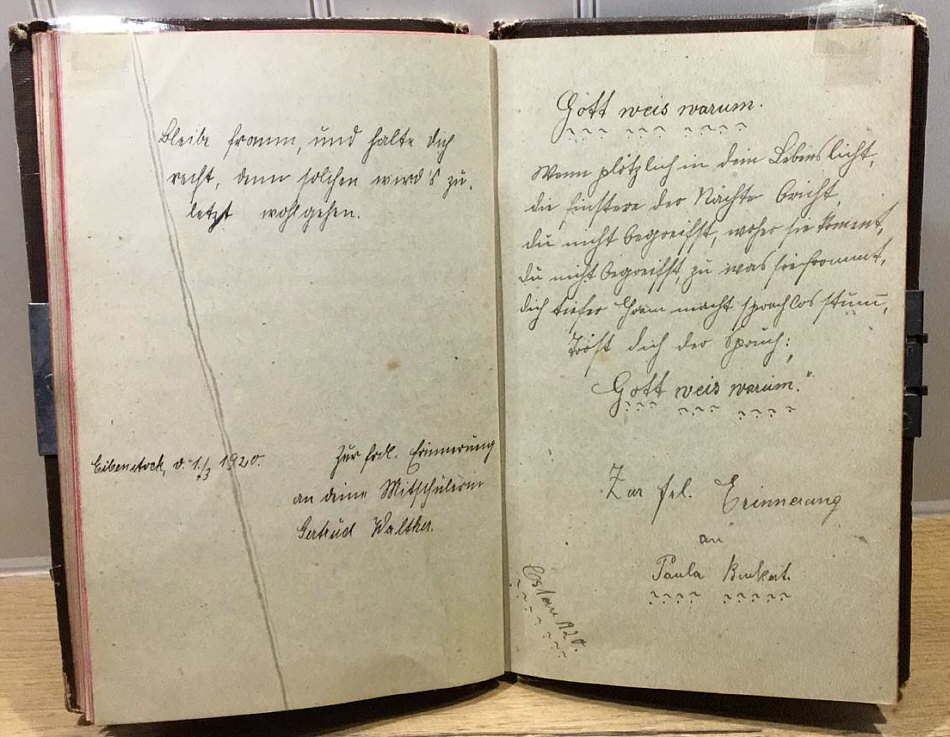 Bleibe fromm, und halte dich
recht, denn solchen wird's zu-
letzt wohlgehen.
Eibenstock, d. 1./3 1920.
Zur frdl. Erinnerung
an deine Mitschülerin
Gertrud Walther.
Gott weis warum.
Wenn plötzlich in dein Lebenslicht,
die finstere der Nächte bricht,
du nicht begreifst, woher sie kommt,
du nicht begreifst, zu was sie frommt,
dich tiefer Gram macht sprachlos stum̅,
Tröst dich der Spruch:
Gott weis warum."
Zur frl. Erinnerung
an
Paula
Ostern 1920.